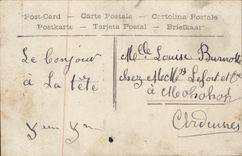 Post-Card — Carte Postale — Cartolina Postale
Postkarte — Tarjeta Postal — Briefkaart
Le bonjour
à La fête
Melle Louise Burnotte
chez M Mrs Lefort et Cie
à Mohon
Ardennes